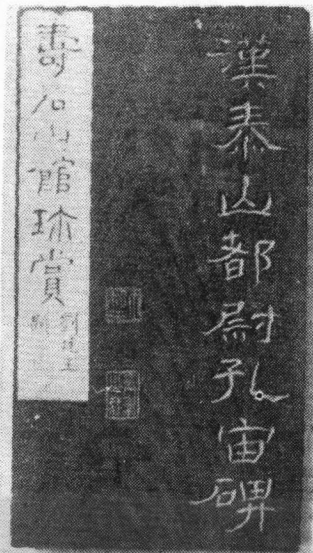 漢泰山都尉孔宙碑
壽石山館珎賞